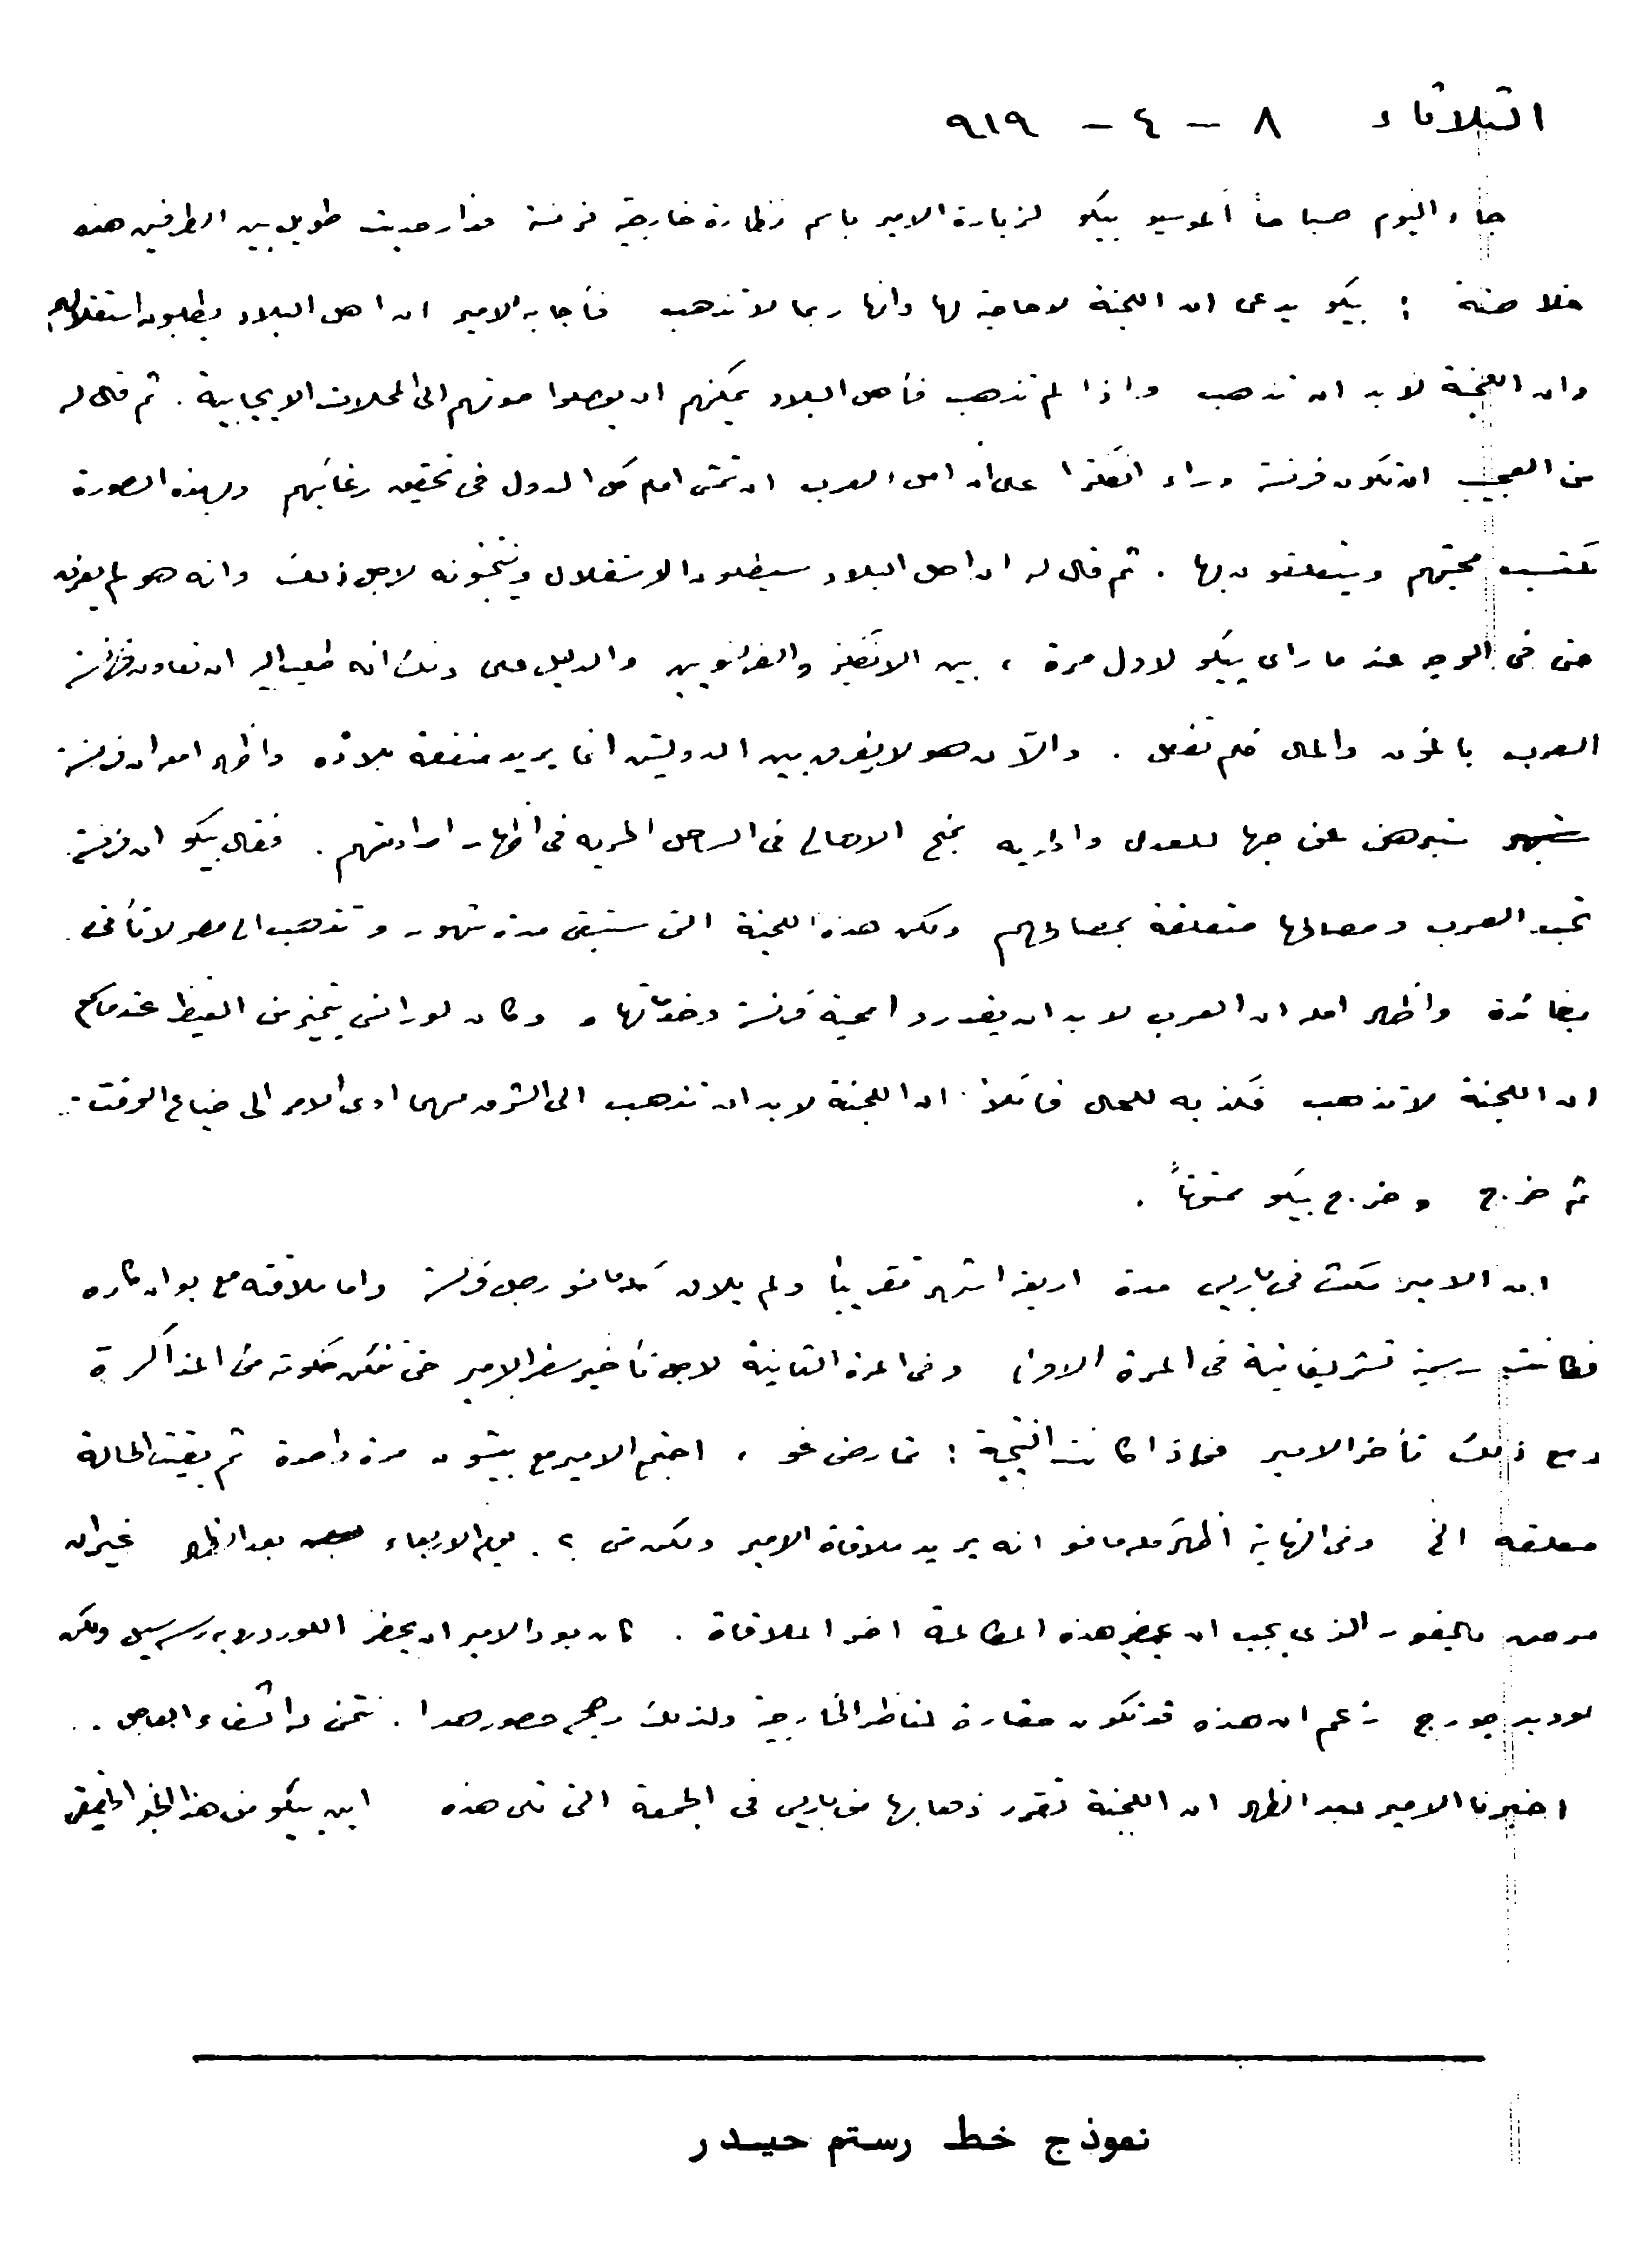 الثلاثاء ٨ - ٤ - ٩١٩
جاء اليوم صباحاً الموسيو بيكو لزيارة الامير باسم نظارة خارجية فرنسة فدار حديث طويل بين الطرفين هذه
خلاصته : بيكو يدعى ان اللجنة لا حاجة لها وانها ربما لا تذهب فأجابه الامير ان اهل البلاد يطلبون استقلالهم
وان اللجنة لا بد ان تذهب واذا لم تذهب فأهل البلاد يمكنهم ان يوصلوا صوتهم الى المحلات الايجابية . ثم قال له
من العجيب ان تكون فرنسة وراء انكلترا على ان امل العرب ان تمشى امام كل الدول فى تحقيق رغائبهم وبهذه الصورة
تكتسب محبتهم ويتعلقون بها . ثم قال له ان اهل البلاد سيطلبون الاستقلال وينتخبونه لاجل ذلك وانه هو لم يفرق
حتى فى الوجه عندما رأى بيكو لاول مرة ، بين الانكليز والفرنسويين والدليل على ذلك انه طلب اليه ان تعاون فرنسة
العرب بالمؤن والمال فلم تفعل . والآن هو لا يفرق بين الدولتين انما يريد منفعة بلاده واظهر امله ان فرنسة
ستبرهن على حبها للعدل والحرية بمنح الاهالى فى الساحل الحرية فى اظهار ارادتهم . فقال بيكو ان فرنسة
تحب العرب ومصالحها متعلقة بمصالحهم ولكن هذه اللجنة التى ستبقى مدة شهور وتذهب الى مصر لا تأتى
بفائدة واظهر امله ان العرب لا بد ان يقدروا محبة فرنسة وخدماتها . وكان لورانس يتميز من الغيظ عندما سمع
ان اللجنة لا تذهب فكذبه للحال قائلاً ان اللجنة لا بد ان تذهب الى الشرق مهما ادى الامر الى ضياع الوقت ..
ثم خرج وخرج بيكو ممتوتاً .
ان الامير مكث فى باريس مدة اربعة اشهر تقريباً ولم يلاق كلمانسو رجل فرنسة واما ملاقته مع بوانكاره
فكانت رسمية تشريفاتية فى المرة الاولى وفى المرة الثانية لاجل تأخير سفر الامير حتى تتمكن حكومته من المذاكرة
ومع ذلك تأخر الامير فماذا كانت النتيجة : تمارض غو ، اجتمع الامير مع بيشون مرة واحدة ثم بقيت الحالة
معلقة الخ وفى النهاية اظهر كلمانسو انه يريد ملاقاة الامير ولكن متى ؟ . يوم الاربعاء بعد الظهر غير ان
مرض بالفور الذى يجب ان يحضر هذه المكالمة اخر الملاقاة . كان بود الامير ان يحضر اللورد روبرت سسيل ولكن
لويد جورج زعم ان هذه قد تكون حقارة لناظر الخارجية ولذلك رجح حضور هذا . نتمنى له الشفاء العاجل ..
اخبرنا الامير بعد الظهر ان اللجنة تقرر ذهابها من باريس فى الجمعة التى تلى هذه اين بيكو من هذا الخبر الحقيقى
نموذج خط رستم حيدر